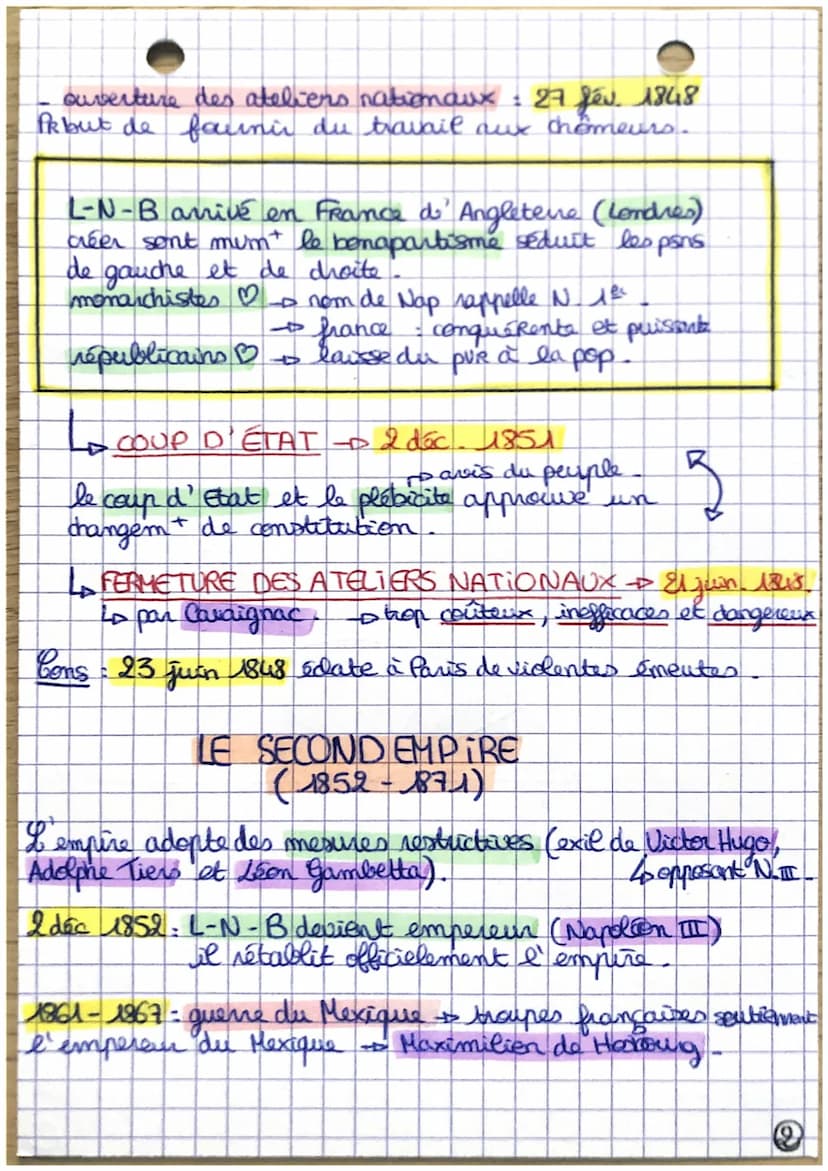 - ouverture des ateliers nationaux : 27 fév. 1848
but de fournir du travail aux chômeurs.
L-N-B arrivé en France d'Angleterre (Londres)
créer sont mvm^t le bonapartisme séduit les psns
de gauche et de droite.
monarchistes ♡ → nom de Nap rappelle N. 1er.
→ france : conquérente et puissante
républicains ♡ → laisse du pvr à la pop.
↳ COUP D'ÉTAT → 2 déc. 1851
↱ avis du peuple.
le coup d'Etat et le plébicite approuve un
changem^t de constitution.
↳ FERMETURE DES ATELIERS NATIONAUX → 21 juin 1848.
↳ par Cavaignac. → trop coûteux, inefficaces et dangereux
Cons : 23 juin 1848 éclate à Paris de violentes émeutes.
LE SECOND EMPIRE
(1852 - 1871)
L'empire adopte des mesures restrictives (exil de Victor Hugo,
Adolphe Tiers et Léon Gambetta). ↳ opposant N.III.
2 déc 1852 : L-N-B devient empereur (Napoléon III)
il rétablit officielement l'empire.
1861 - 1867 : guerre du Mexique → troupes françaises soutiennent
l'empereur du Mexique → Maximilien de
2